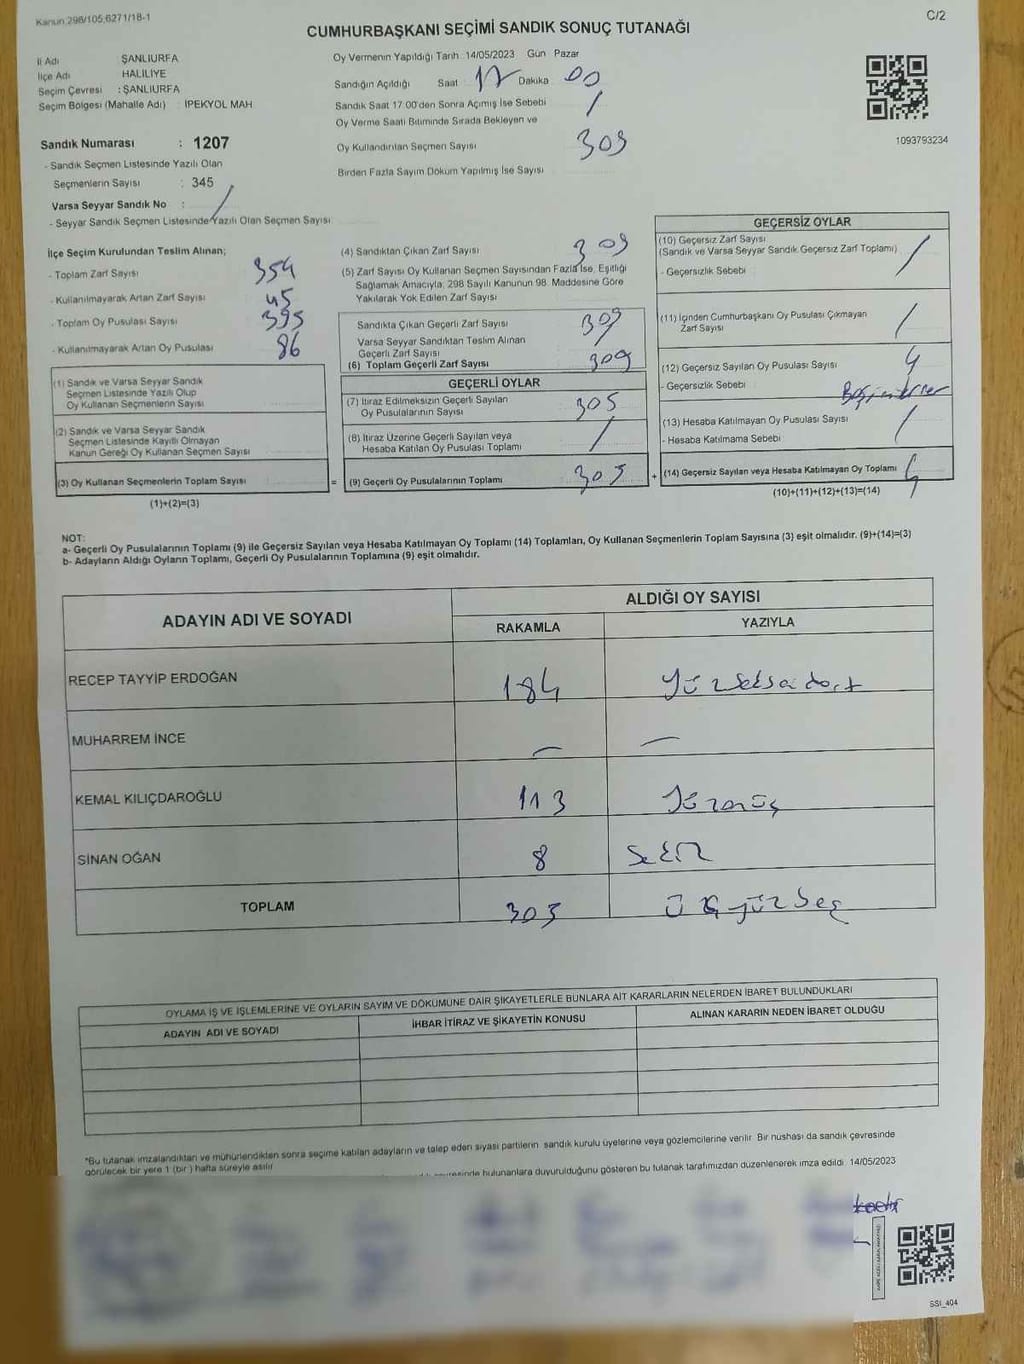 Kanun 298/105;6271/18-1
C/2
CUMHURBAŞKANI SEÇİMİ SANDIK SONUÇ TUTANAĞI
İl Adı : ŞANLIURFA
İlçe Adı : HALİLİYE
Seçim Çevresi : ŞANLIURFA
Seçim Bölgesi (Mahalle Adı) : İPEKYOL MAH
Oy Vermenin Yapıldığı Tarih 14/05/2023 Gün Pazar
Sandığın Açıldığı Saat 17 Dakika 00
Sandık Saat 17:00'den Sonra Açılmış İse Sebebi /
Oy Verme Saati Bitiminde Sırada Bekleyen ve
Oy Kullandırılan Seçmen Sayısı 309
Birden Fazla Sayım Döküm Yapılmış İse Sayısı
1093793234
Sandık Numarası : 1207
- Sandık Seçmen Listesinde Yazılı Olan
Seçmenlerin Sayısı : 345
Varsa Seyyar Sandık No : /
- Seyyar Sandık Seçmen Listesinde Yazılı Olan Seçmen Sayısı
İlçe Seçim Kurulundan Teslim Alınan;
- Toplam Zarf Sayısı 354
- Kullanılmayarak Artan Zarf Sayısı 45
- Toplam Oy Pusulası Sayısı 395
- Kullanılmayarak Artan Oy Pusulası 86
(1) Sandık ve Varsa Seyyar Sandık
Seçmen Listesinde Yazılı Olup
Oy Kullanan Seçmenlerin Sayısı
(2) Sandık ve Varsa Seyyar Sandık
Seçmen Listesinde Kayıtlı Olmayan
Kanun Gereği Oy Kullanan Seçmen Sayısı
(3) Oy Kullanan Seçmenlerin Toplam Sayısı
(1)+(2)=(3)
(4) Sandıktan Çıkan Zarf Sayısı 309
(5) Zarf Sayısı Oy Kullanan Seçmen Sayısından Fazla İse, Eşitliği
Sağlamak Amacıyla; 298 Sayılı Kanunun 98. Maddesine Göre
Yakılarak Yok Edilen Zarf Sayısı
Sandıkta Çıkan Geçerli Zarf Sayısı 309
Varsa Seyyar Sandıktan Teslim Alınan
Geçerli Zarf Sayısı
(6) Toplam Geçerli Zarf Sayısı 309
GEÇERLİ OYLAR
(7) İtiraz Edilmeksizin Geçerli Sayılan
Oy Pusulalarının Sayısı 305
(8) İtiraz Üzerine Geçerli Sayılan veya
Hesaba Katılan Oy Pusulası Toplamı /
= (9) Geçerli Oy Pusulalarının Toplamı 305
GEÇERSİZ OYLAR
(10) Geçersiz Zarf Sayısı
(Sandık ve Varsa Seyyar Sandık Geçersiz Zarf Toplamı) /
- Geçersizlik Sebebi
(11) İçinden Cumhurbaşkanı Oy Pusulası Çıkmayan
Zarf Sayısı /
(12) Geçersiz Sayılan Oy Pusulası Sayısı 4
- Geçersizlik Sebebi
(13) Hesaba Katılmayan Oy Pusulası Sayısı /
- Hesaba Katılmama Sebebi
+ (14) Geçersiz Sayılan veya Hesaba Katılmayan Oy Toplamı 4
(10)+(11)+(12)+(13)=(14)
NOT:
a- Geçerli Oy Pusulalarının Toplamı (9) ile Geçersiz Sayılan veya Hesaba Katılmayan Oy Toplamı (14) Toplamları, Oy Kullanan Seçmenlerin Toplam Sayısına (3) eşit olmalıdır. (9)+(14)=(3)
b- Adayların Aldığı Oyların Toplamı, Geçerli Oy Pusulalarının Toplamına (9) eşit olmalıdır.
ADAYIN ADI VE SOYADI
ALDIĞI OY SAYISI
RAKAMLA YAZIYLA
RECEP TAYYİP ERDOĞAN 184
MUHARREM İNCE — —
KEMAL KILIÇDAROĞLU 113
SİNAN OĞAN 8 Sekiz
TOPLAM 305 üçyüzbeş
OYLAMA İŞ VE İŞLEMLERİNE VE OYLARIN SAYIM VE DÖKÜMÜNE DAİR ŞİKAYETLERLE BUNLARA AİT KARARLARIN NELERDEN İBARET BULUNDUKLARI
ADAYIN ADI VE SOYADI İHBAR İTİRAZ VE ŞİKAYETİN KONUSU ALINAN KARARIN NEDEN İBARET OLDUĞU
*Bu tutanak imzalandıktan ve mühürlendikten sonra seçime katılan adayların ve talep eden siyasi partilerin sandık kurulu üyelerine veya gözlemcilerine verilir. Bir nüshası da sandık çevresinde
görülecek bir yere 1 (bir) hafta süreyle asılır.
bulunanlara duyurulduğunu gösteren bu tutanak tarafımızdan düzenlenerek imza edildi. 14/05/2023
SSI_404